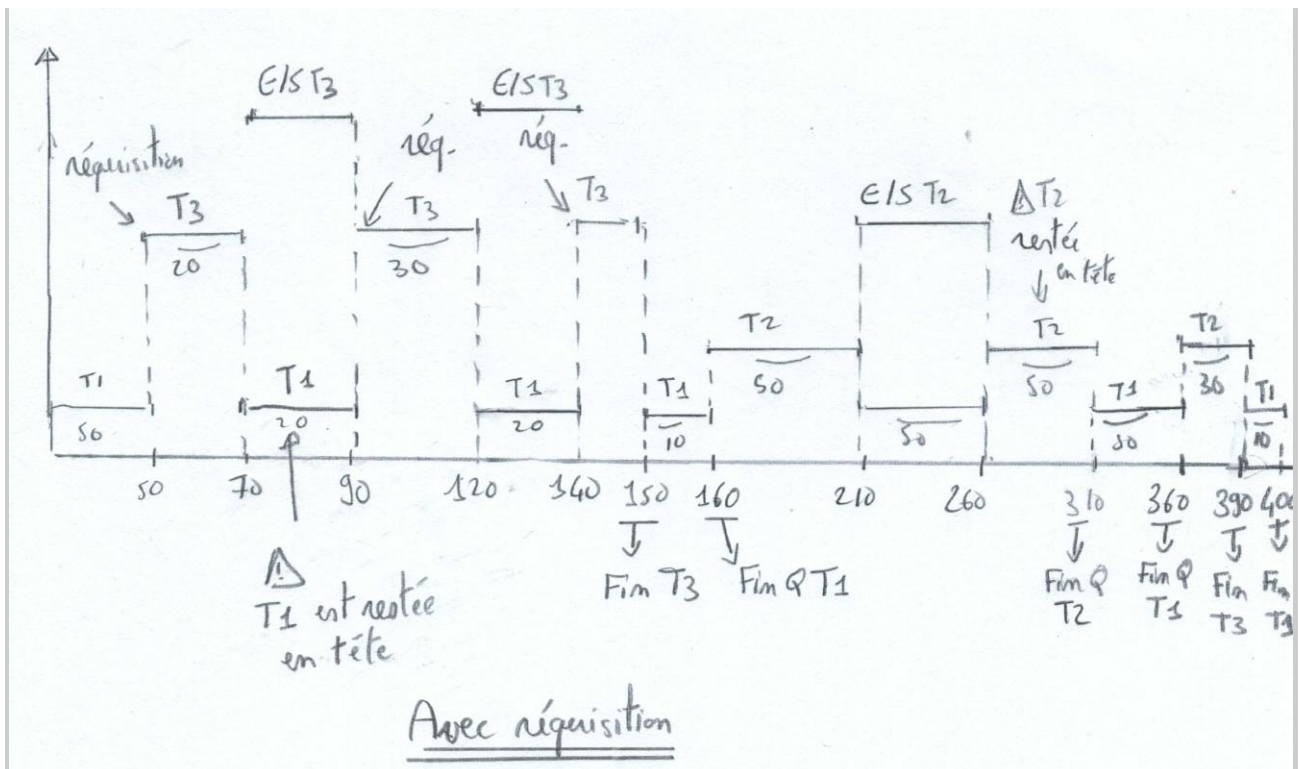 E/S T3
E/S T3
réquisition
réq.
réq.
T3
T3
T3
E/S T2
⚠ T2
restée
en tête
20
30
T2
T2
T2
T1
T1
T1
T1
T1
T1
50
20
20
10
50
50
50
50
30
10
50
70
90
120
140
150
160
210
260
310
360
390
400
⚠
T1 est restée
en tête
Fin T3
Fin Q T1
Fin Q
T2
Fin Q
T1
Fin
T3
Fin
Avec réquisition